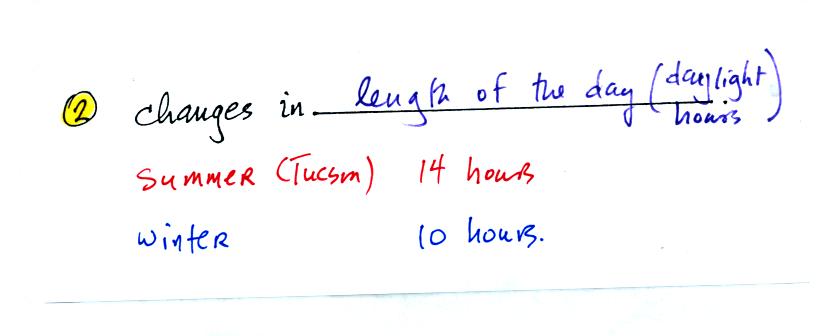 ② changes in length of the day (daylight hours)
Summer (Tucson) 14 hours
Winter 10 hours.